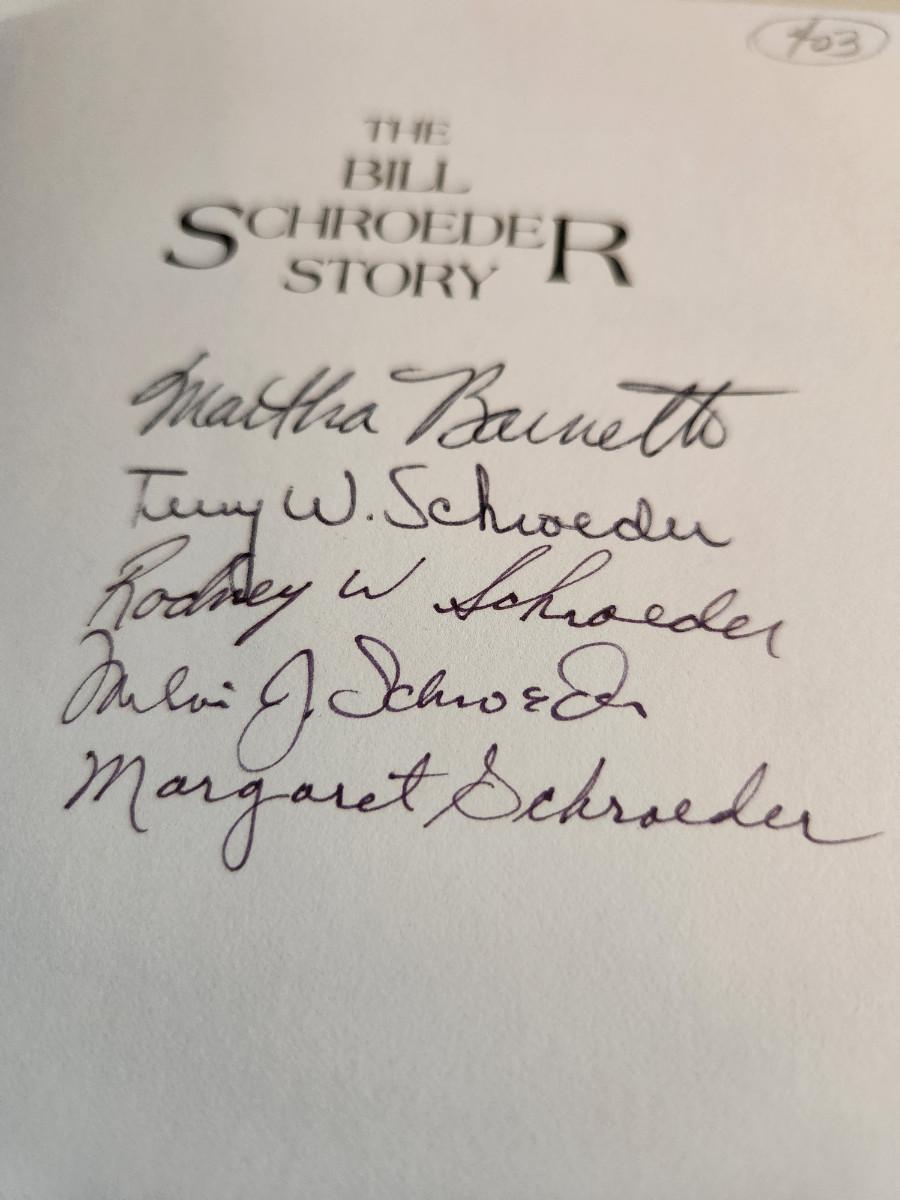 #03
THE
BILL
SCHROEDER
STORY
Martha Barnette
Terry W. Schroeder
Rodney W Schroeder
Melvin J. Schroeder
Margaret Schroeder